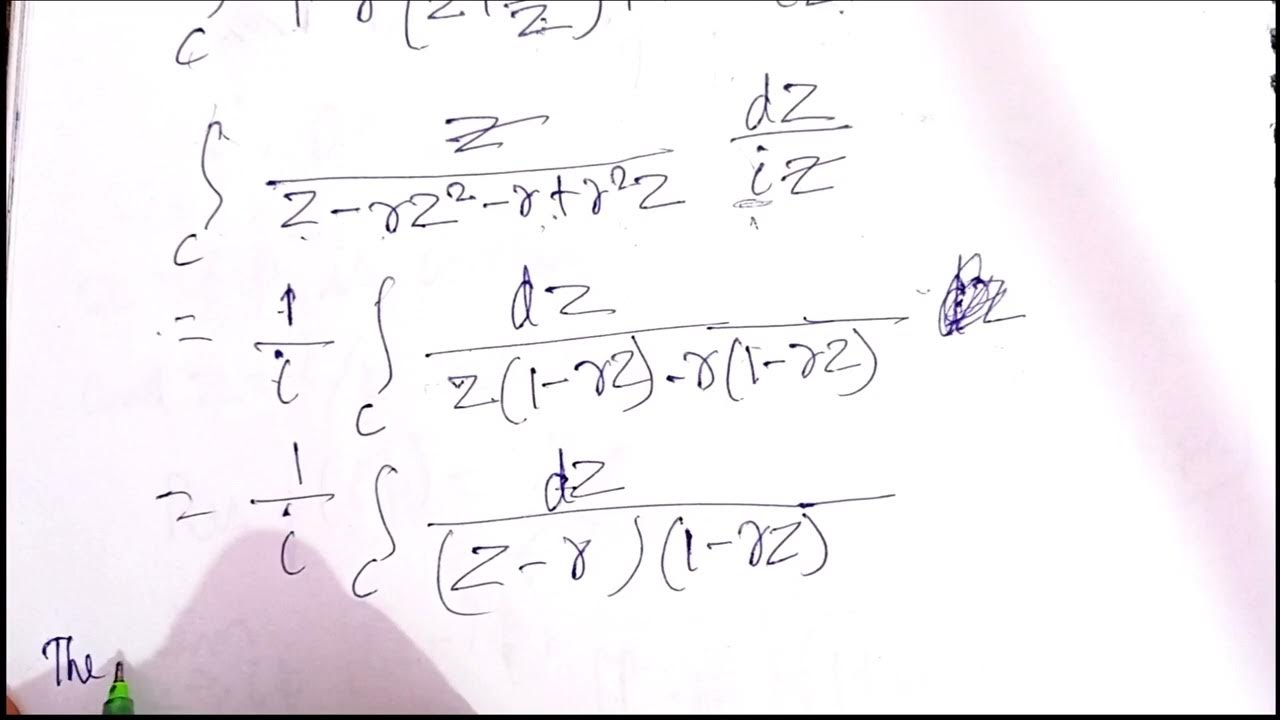 ∫_C z/(z - rz² - r + r²z) dz/(iz)
= 1/i ∫_C dz/(z(1-rz) - r(1-rz))
= 1/i ∫_C dz/((z-r)(1-rz))
The